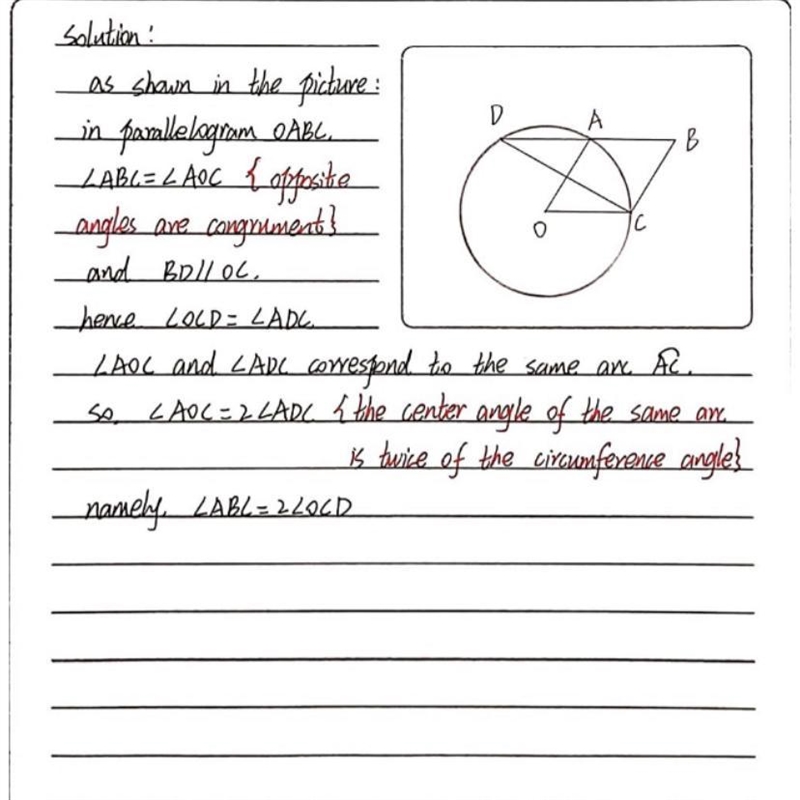 Solution:
as shown in the picture:
in parallelogram OABC.
∠ABC=∠AOC {opposite
angles are congrument}
and BD//OC.
hence ∠OCD=∠ADC.
∠AOC and ∠ADC correspond to the same arc A͡C.
so ∠AOC=2∠ADC {the center angle of the same arc
is twice of the circumference angle}
namely. ∠ABC=2∠OCD
D
A
B
O
C